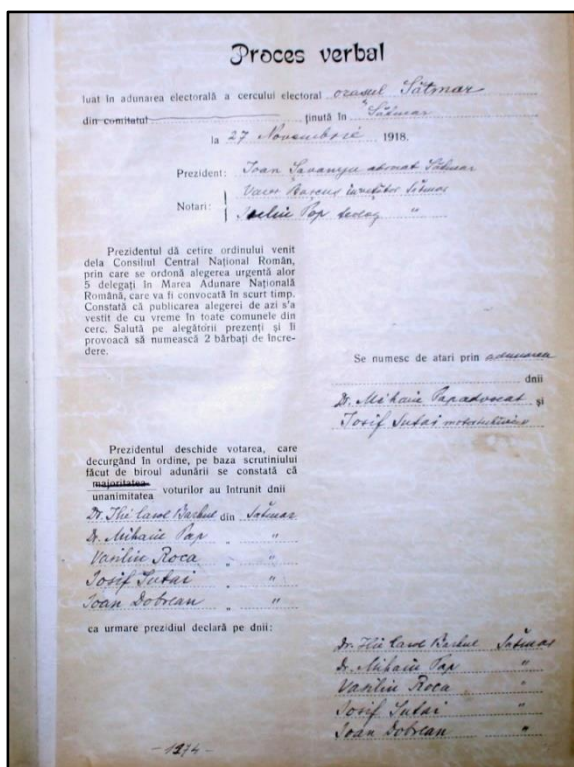 Proces verbal
luat în adunarea electorală a cercului electoral orașul Sătmar
din comitatul ținută în Sătmar
la 27 Novembrie 1918.
Prezident: Ioan Savanyu Sătmar
Sătmar
Notari: Iuliu Pap teolog "
Prezidentul dă cetire ordinului venit
dela Consiliul Central Național Român,
prin care se ordonă alegerea urgentă alor
5 delegați în Marea Adunare Națională
Română, care va fi convocată în scurt timp.
Constată că publicarea alegerei de azi s'a
vestit de cu vreme în toate comunele din
cerc. Salută pe alegătorii prezenți și îi
provoacă să numească 2 bărbați de încre-
dere.
Se numesc de atari prin adunarea
dnii
Dr. Mihaiu Pap advocat și
Iosif Sutai
Prezidentul deschide votarea, care
decurgând în ordine, pe baza scrutiniului
făcut de biroul adunării se constată că
majoritatea
unanimitatea voturilor au întrunit dnii
Dr. Ilie Carol Barbul din Sătmar
Dr. Mihaiu Pap „ "
Vasiliu Roca „ "
Iosif Sutai „ "
Ioan Dobrean „ "
ca urmare prezidiul declară pe dnii:
Dr. Ilie Carol Barbul Sătmar
Dr. Mihaiu Pap "
Vasiliu Roca "
Iosif Sutai "
Ioan Dobrean "
- 1974 -